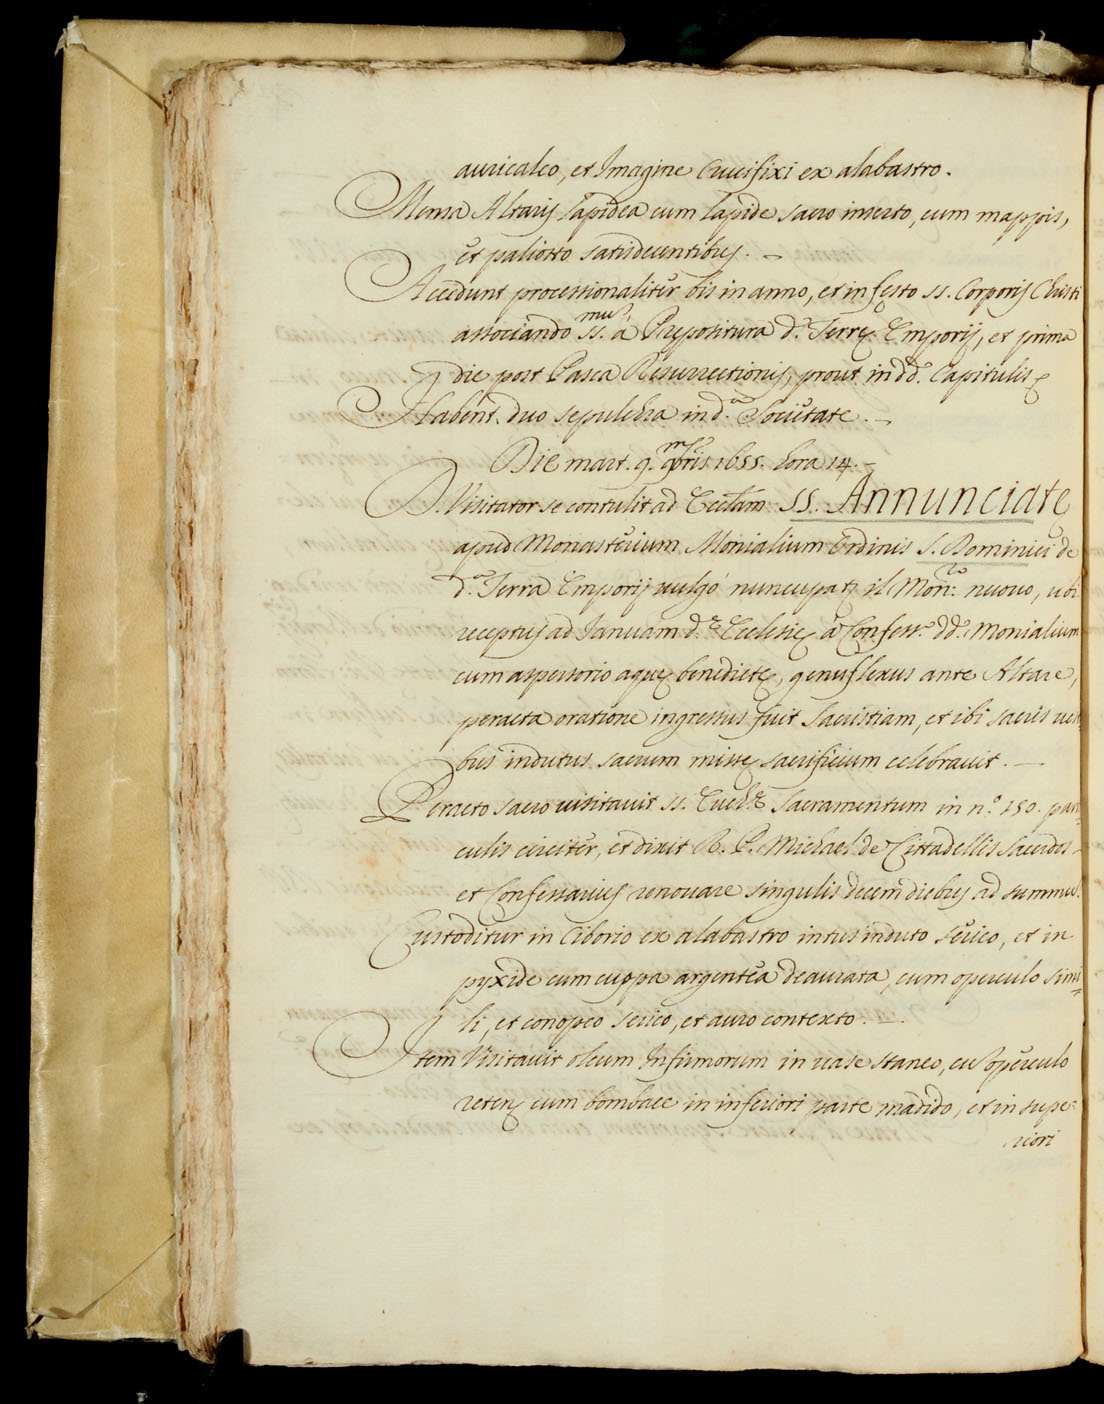 auricalco, et Imagine Crucifixi ex alabastro.
Mensa Altaris lapidea cum lapide sacro inserto, cum mappis,
et paliotto satisdecentibus.
Accedunt processionaliter bis in anno, et in festo SS. Corporis Christi
associando SS.mum à Prepositura d.e Terrę Emporij, et prima
die post Pasca Resurrectionis, prout in dd. Capitulis
Habent duo sepulchra in d.a Societate.
Die mart. 9. 9mbris 1655. hora 14.
D. Visitator se contulit ad Ecclam SS. Annunciatę
apud Monasterium Monialium Ordinis S. Dominici de
d.a Terra Emporij vulgò nuncupatę il Mon.ro nuovo, ubi
receptus ad Januam d.ę Ecclesię à Confess.e dd. Monialium
cum aspersorio aquę benedictę, genuflexus ante Altare,
peracta oratione ingressus fuit Sacristiam, et ibi sacris vesti
bus indutus sacrum missę sacrificium celebravit.
Peracto sacro visitavit SS. Euch.ę Sacramentum in n.o 150. part=
culis circiter, et dixit R. P. Michael de Cittadellis Sacerdos
et Confessarius renovare singulis decem diebus ad summum.
Custoditur in Ciborio ex alabastro intus induto serico, et in
pyxide cum cuppa argentea deaurata, cum operculo simi=
li, et conopeo serico, et auro contexto.
Item Visitavit oleum Infirmorum in vase staneo, cu operculo
cum bombace in inferiori parte madido, et in supe=
riori